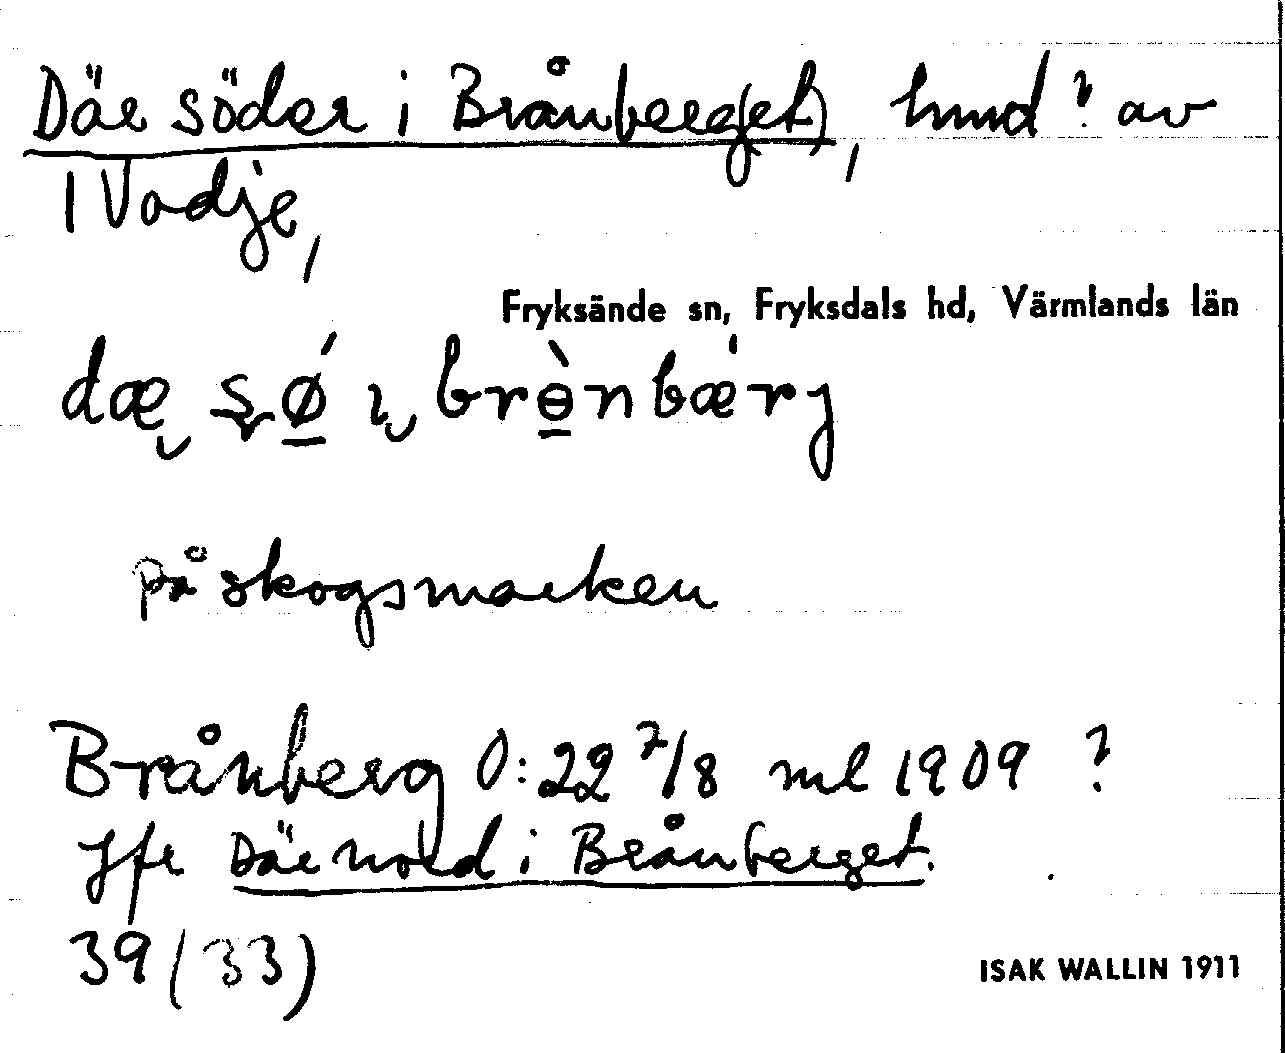 Där söder i Brånberget), hmd? av
1 Vadje,
Fryksände sn, Fryksdals hd, Värmlands län
på skogsmarken
Brånberg 0:22 7/8 ml 1909 ?
Jfr Där nord i Brånberget.
39 (33)
ISAK WALLIN 1911